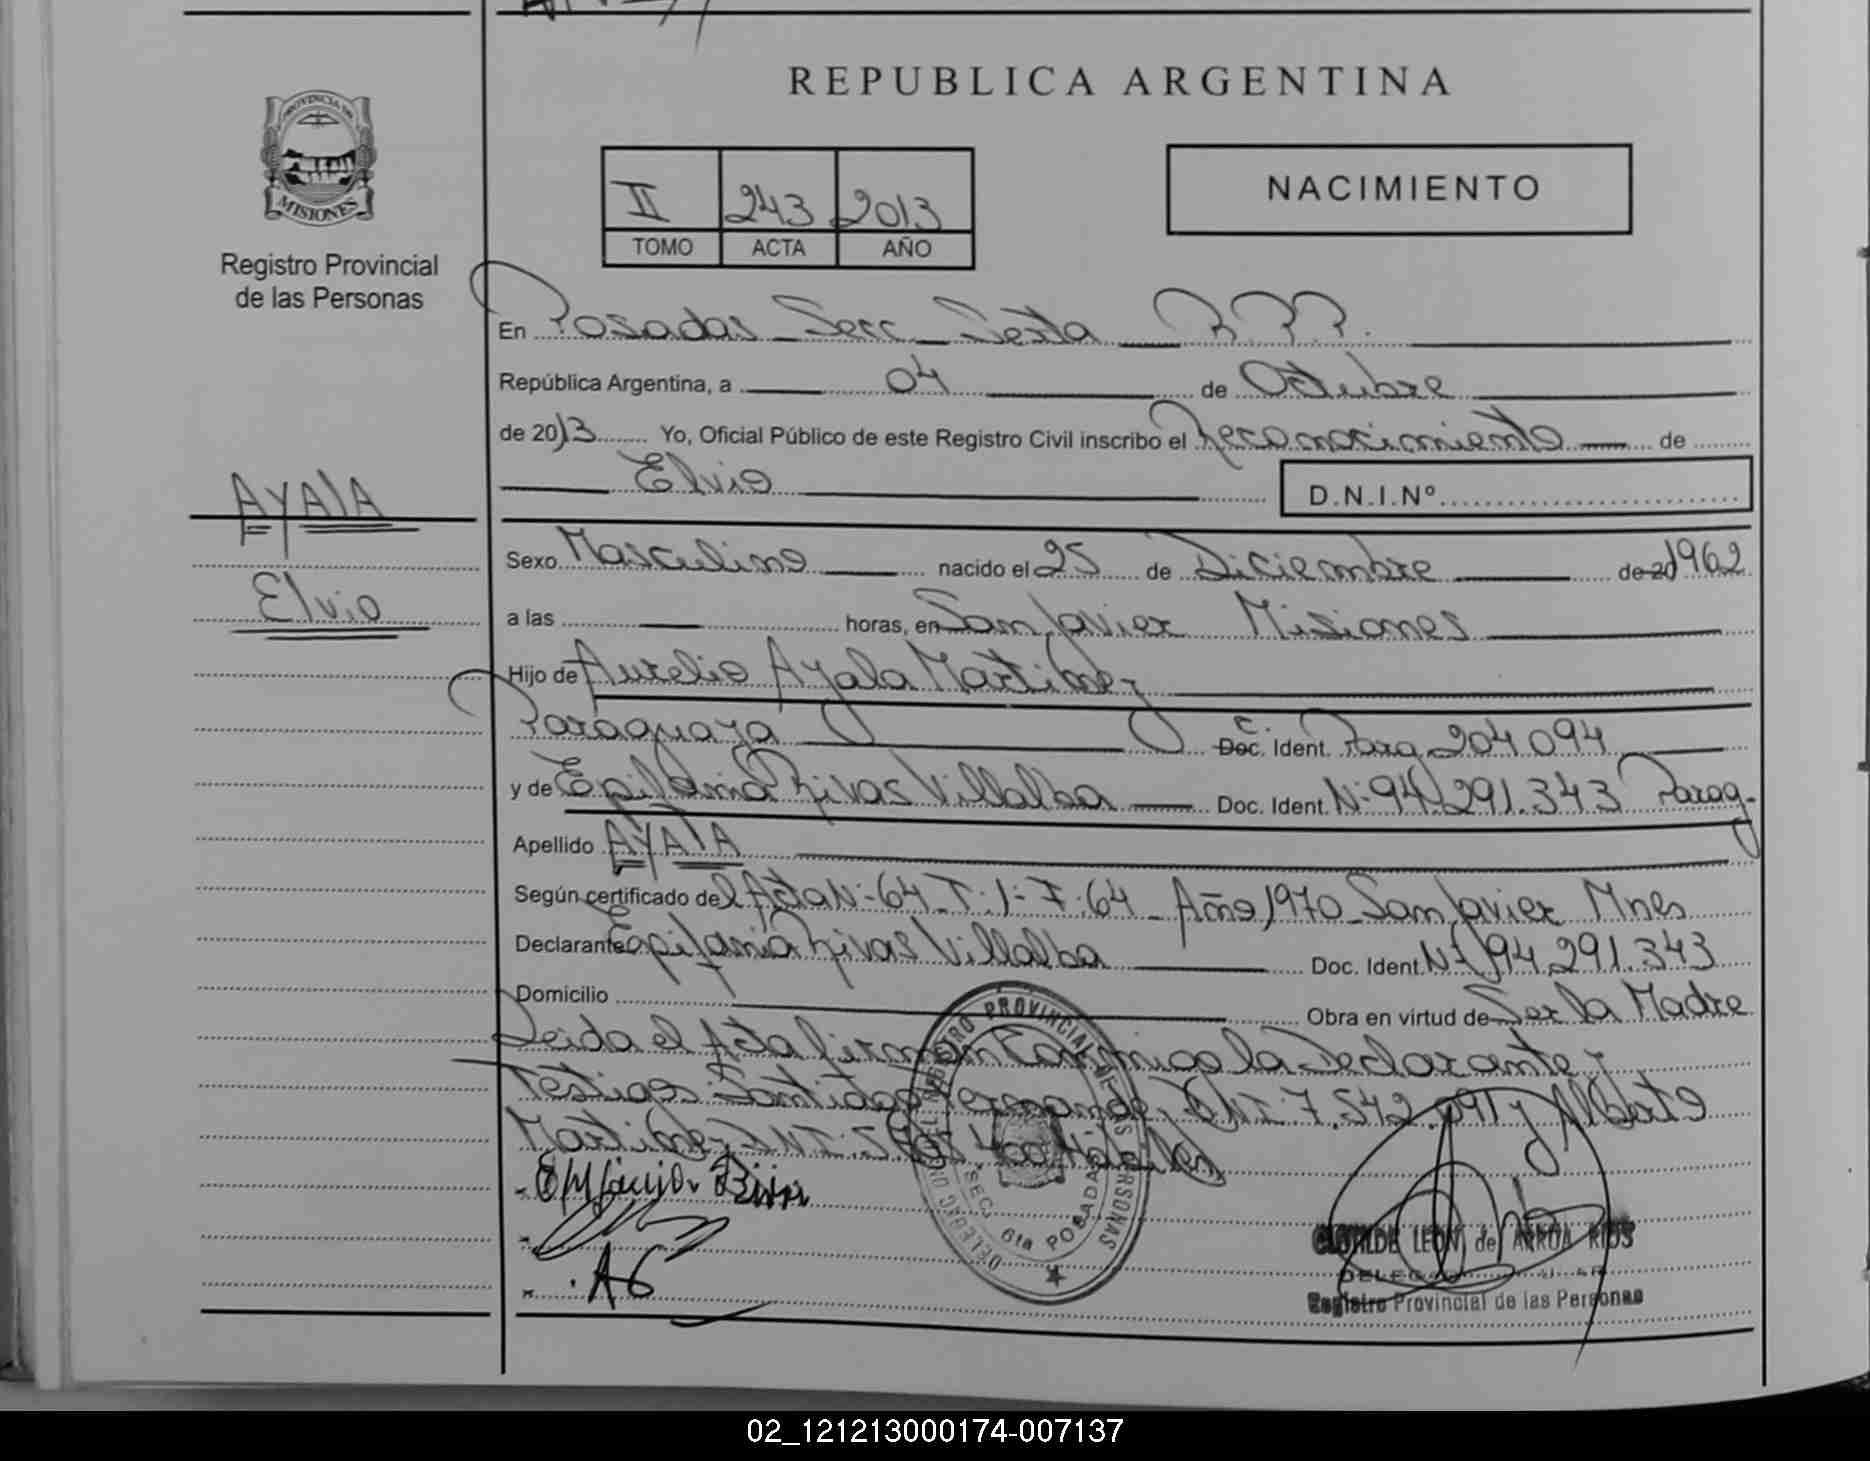 REPUBLICA ARGENTINA
PROVINCIA DE
MISIONES
Registro Provincial
de las Personas
II 243 2013
TOMO ACTA AÑO
NACIMIENTO
En Posadas Secc Sexta R.P.P.
República Argentina, a 04 de Octubre
de 2013 Yo, Oficial Público de este Registro Civil inscribo el Reconocimiento de
Elvio D.N.I.Nº
AYALA
Elvio
Sexo Masculino nacido el 25 de Diciembre de 20 1962
a las horas, en San Javier Misiones
Hijo de Aurelio Ayala Martinez
Paraguaya C. Doc. Ident. Parag 204.094
y de Epifania Rivas Villalba Doc. Ident. Nº 94.291.343 Parag.
Apellido AYALA
Según certificado del Acta Nº 64 T: I- F: 64 Año 1970 San Javier Mnes
Declarante Epifania Rivas Villalba Doc. Ident. Nº 94.291.343
Domicilio Obra en virtud de Ser la Madre
Leida el Acta firman conmigo la Declarante y
Testigos DNI 7.542. y Alberto
Martinez
CLOTILDE LEON de ARROA RIOS
Registro Provincial de las Personas
REGISTRO PROVINCIAL DE LAS PERSONAS
SECC. 6ta POSADAS
02_121213000174-007137